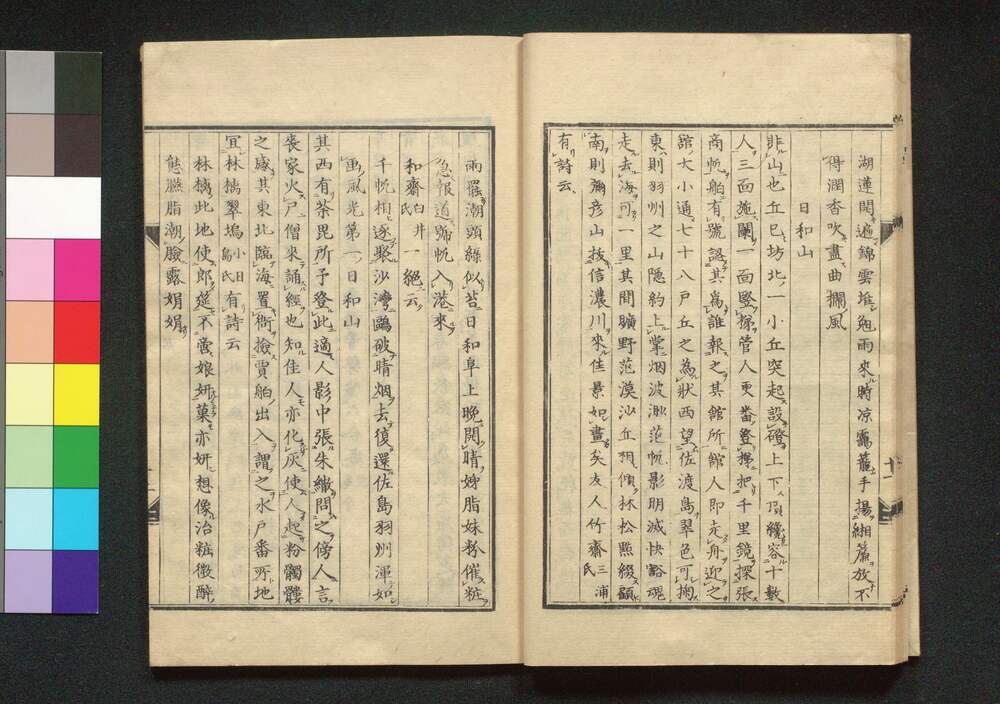 湖蓮開遍錦雲堆過雨來時凉露籠手揚緗簾放不
得潤香吹盡曲欄風
日和山
非山也丘已坊北一小丘突起設磴上下頂纔容十數
人三面施闌一面竪梯管人更番登梯把千里鏡探張
商帆舶有號認其爲誰報之其館所館人即走舟迎之
館大小通七十八戶丘之為狀西望佐渡島翠色可掬
東則羽州之山隱約上掌烟波渺茫帆影明滅快豁魂
走去海可一里其間曠野茫漠沙丘相傾林松點綴顧
南則彌彥山技信濃川來佳景如畫矣友人竹齋三浦氏
有詩云
雨罷潮頭綠似苔日和阜上晚開晴姊脂妹粉催粧
急報道歸帆入港來
和齋白井氏一絕云
千帆相逐聚沙灣鷗破晴烟去復還佐島羽州渾如
畫風光第一日和山
其西有荼毘所予登此適人影中張朱繖問之傍人言
喪家火尸僧來誦經也知佳人亦化灰使人起粉髑髏
之感其東北臨海置衙撿賈舶出入謂之水戶番所地
宜林檎翠塢小田島氏有詩云
林檎此地使郎筵不啻娘妍菓亦妍想像治粧微醉
態臙脂潮臉露娟娟